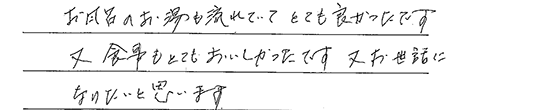 お風呂のお湯も流れていて とても良かったです
又 食事もとてもおいしかったです 又お世話に
なりたいと思います